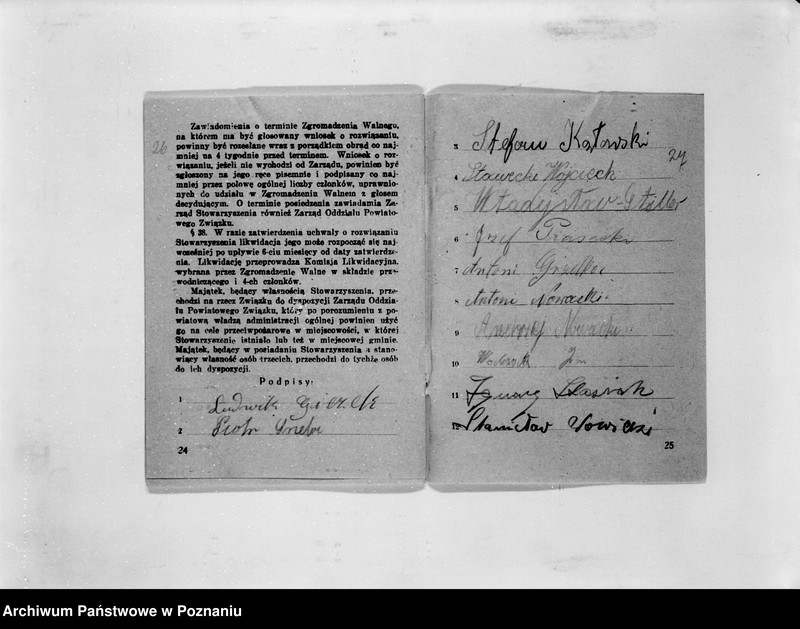 26
Zawiadomienia o terminie Zgromadzenia Walnego,
na którem ma być głosowany wniosek o rozwiązaniu,
powinny być rozesłane wraz z porządkiem obrad co naj-
mniej na 4 tygodnie przed terminem. Wniosek o roz-
wiązaniu, jeżeli nie wychodzi od Zarządu, powinien być
zgłoszony na jego ręce pisemnie i podpisany co naj-
mniej przez połowę ogólnej liczby członków, uprawnio-
nych do udziału w Zgromadzeniu Walnem z głosem
decydującym. O terminie posiedzenia zawiadamia Za-
rząd Stowarzyszenia również Zarząd Oddziału Powiato-
wego Związku.
§ 38. W razie zatwierdzenia uchwały o rozwiązaniu
Stowarzyszenia likwidacja jego może rozpocząć się naj-
wcześniej po upływie 6-ciu miesięcy od daty zatwierdze-
nia. Likwidację przeprowadza Komisja Likwidacyjna,
wybrana przez Zgromadzenie Walne w składzie prze-
wodniczącego i 4-ch członków.
Majątek, będący własnością Stowarzyszenia, prze-
chodzi na rzecz Związku do dyspozycji Zarządu Oddzia-
łu Powiatowego Związku, który po porozumieniu z po-
wiatową władzą administracji ogólnej powinien użyć
go na cele przeciwpożarowe w miejscowości, w której
Stowarzyszenie istniało lub też w miejscowej gminie.
Majątek, będący w posiadaniu Stowarzyszenia a stano-
wiący własność osób trzecich, przechodzi do tychże osób
do ich dyspozycji.
Podpisy:
1 Ludwik
2 Piotr
24
27
3 Stefan Kozłowski
4 Wojciech
5 Władysław
6 Józef
7 Antoni
8 Antoni Nowacki
9 Andrzej Nowacki
10
11 Ignacy
12 Stanisław
25
Archiwum Państwowe w Poznaniu